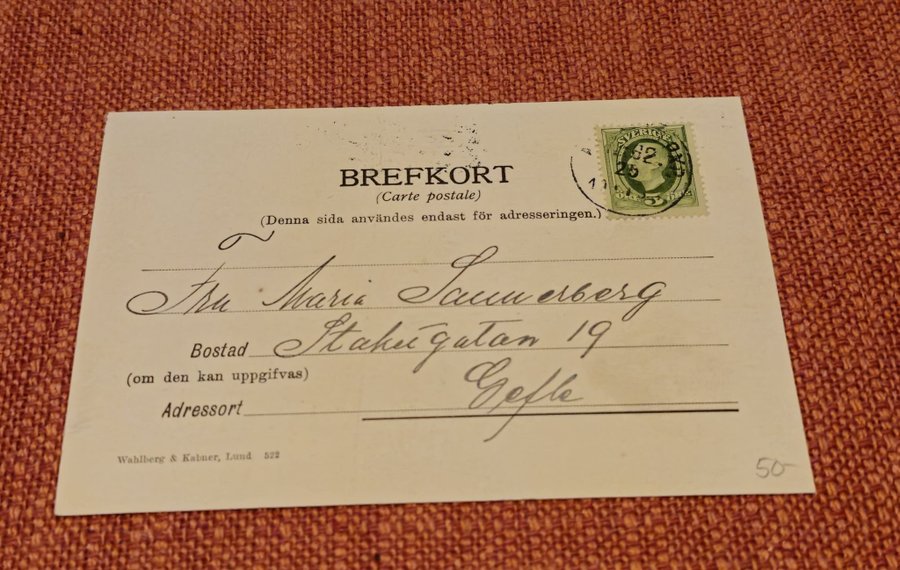 BREFKORT
(Carte postale)
(Denna sida användes endast för adresseringen.)
SVERIGE
5
Fru Maria Sannerberg
Bostad Staketgatan 19
(om den kan uppgifvas)
Gefle
Adressort
Wahlberg & Kabner, Lund 522
50-